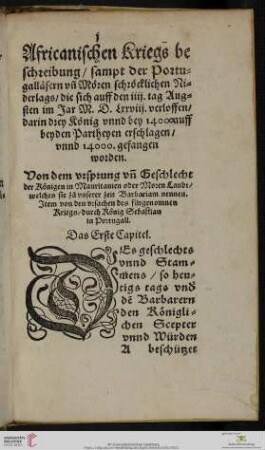 1
Africanischen Kriegs be
schreibung/ sampt der Portu-
galläsern vñ Mören schröcklichen Ni-
derlags/ die sich auff den iiij. tag Aug-
sten im Jar M. D. Lxxviij. verloffen/
darin drey König vnnd bey 14000 auff
beyden Partheyen erschlagen/
vnnd 14000. gefangen
worden.
Von dem vrsprung vñ Geschlecht
der Königen in Mauritanien oder Moren Landt/
welchen sie zů vnserer zeit Barbariam nennen.
Item von den vrsachen des fürgenomnen
Kriegs/ durch König Sebastian
in Portugall.
Das Erste Capitel.
DEs geschlechts
vnnd Stam-
mens/ so heu-
tigs tags vnd
dẽ Barbarern
den Königli-
chen Scepter
vnnd Würden
A beschützet